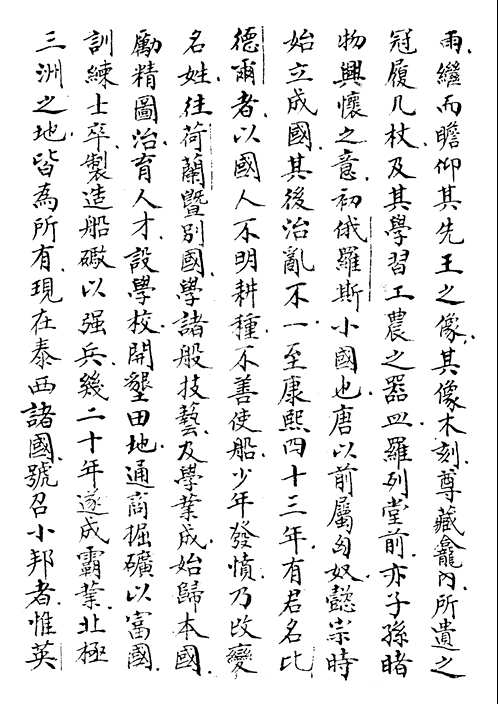 雨.繼而瞻仰其先王之像.其像木刻.尊藏龕內.所遺之
冠履几杖.及其學習工農之器皿.羅列堂前.亦子孫睹
物興懷之意.初俄羅斯小國也.唐以前屬匈奴懿宗時
始立成國.其後治亂不一至康熙四十三年有君名比
德爾者.以國人不明耕種.不善使船.少年發憤.乃改變
名姓.往荷蘭暨別國.學諸般技藝.及學業成.始歸本國.
勵精圖治.育人才.設學校.開墾田地.通商掘礦以富國.
訓練士卒.製造船礮以强兵.幾二十年遂成霸業.北極
三洲之地.皆為所有.現在泰西諸國.號召小邦者.惟英